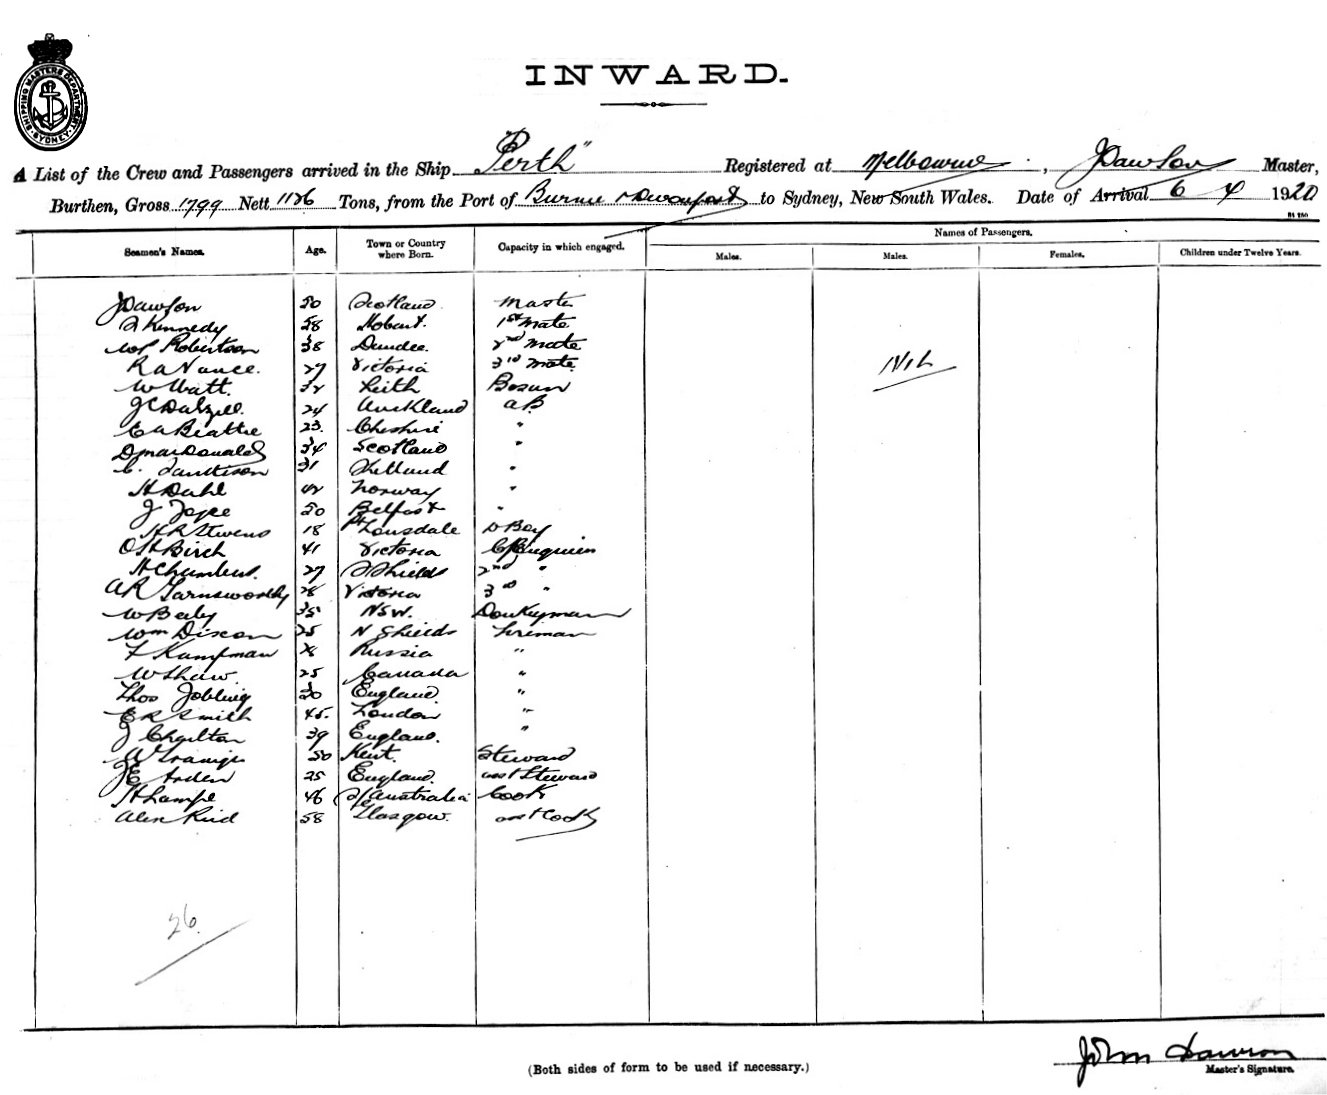 SHIPPING MASTERS DEPARTMENT SYDNEY
INWARD.
A List of the Crew and Passengers arrived in the Ship "Perth" Registered at Melbourne, J Dawson Master,
Burthen, Gross 1799 Nett Tons, from the Port of Burnie & Devonport to Sydney, New South Wales. Date of Arrival 6 4 1920
Seamen's Names. Age. Town or Country where Born. Capacity in which engaged. Names of Passengers.
Males. Males. Females. Children under Twelve Years.
J Dawson 50 Scotland Master
Kennedy 58 Hobart. 1st Mate
Robertson 38 Dundee. 2nd Mate
R A Vance. 27 Victoria 3rd Mate
Nil
W Watt. 32 Leith Bosun
J C Dalzell. 24 Auckland AB
E A Beattie 23. Cheshire "
D MacDonald 34 Scotland "
C. 31 "
H Dahl 42 Norway "
J Joyce 50 Belfast "
H R Stevens 18 Pt Lonsdale D Boy
O H Birch 41 Victoria
H Chambers. 27 S Shields 2nd "
A R Farnsworthy 28 Victoria 3rd "
W 35 NSW. Donkeyman
Wm Dixon 25 N Shields Fireman
F Kampman Russia "
W Shaw. 25 Canada "
Thos Jobling 30 England "
E R Smith 45. London "
J Charlton 39 England. "
W 50 Kent. Steward
J E Arden 25 England. asst Steward
H Lampe 46 Australia Cook
Alex Reid 58 Glasgow. asst Cook
26
(Both sides of form to be used if necessary.)
John Dawson
Master's Signature.